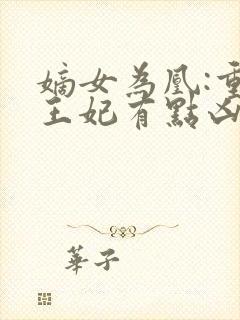 嫡女為凰:重
王妃有點凶
華子